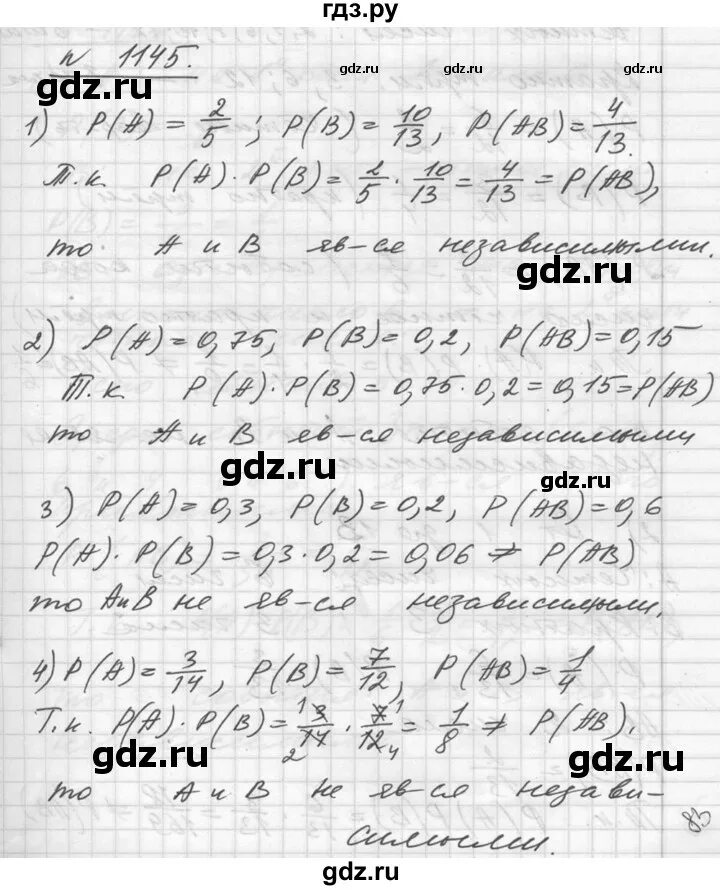 гдз.ру
№ 1145.
gdz.ru gdz.ru
1) P(A) = 2/5; P(B) = 10/13, P(AB) = 4/13.
gdz.ru
Т.к. P(A) · P(B) = 2/5 · 10/13 = 4/13 = P(AB),
то A и B яв-ся независимыми.
gdz.ru
2) P(A) = 0,75, P(B) = 0,2, P(AB) = 0,15
Т.к. P(A) · P(B) = 0,75 · 0,2 = 0,15 = P(AB)
то A и B яв-ся независимыми
gdz.ru gdz.ru
3) P(A) = 0,3, P(B) = 0,2, P(AB) = 0,6
P(A) · P(B) = 0,3 · 0,2 = 0,06 ≠ P(AB)
то A и B не яв-ся независимыми.
gdz.ru
4) P(A) = 3/14, P(B) = 7/12, P(AB) = 1/4
Т.к. P(A) · P(B) = 3/14 · 7/12 = 1/8 ≠ P(AB).
1 1
2 4
gdz.ru gdz.ru
то A и B не яв-ся незави-
симыми.
83
gdz.ru gdz.ru
гдз.ру